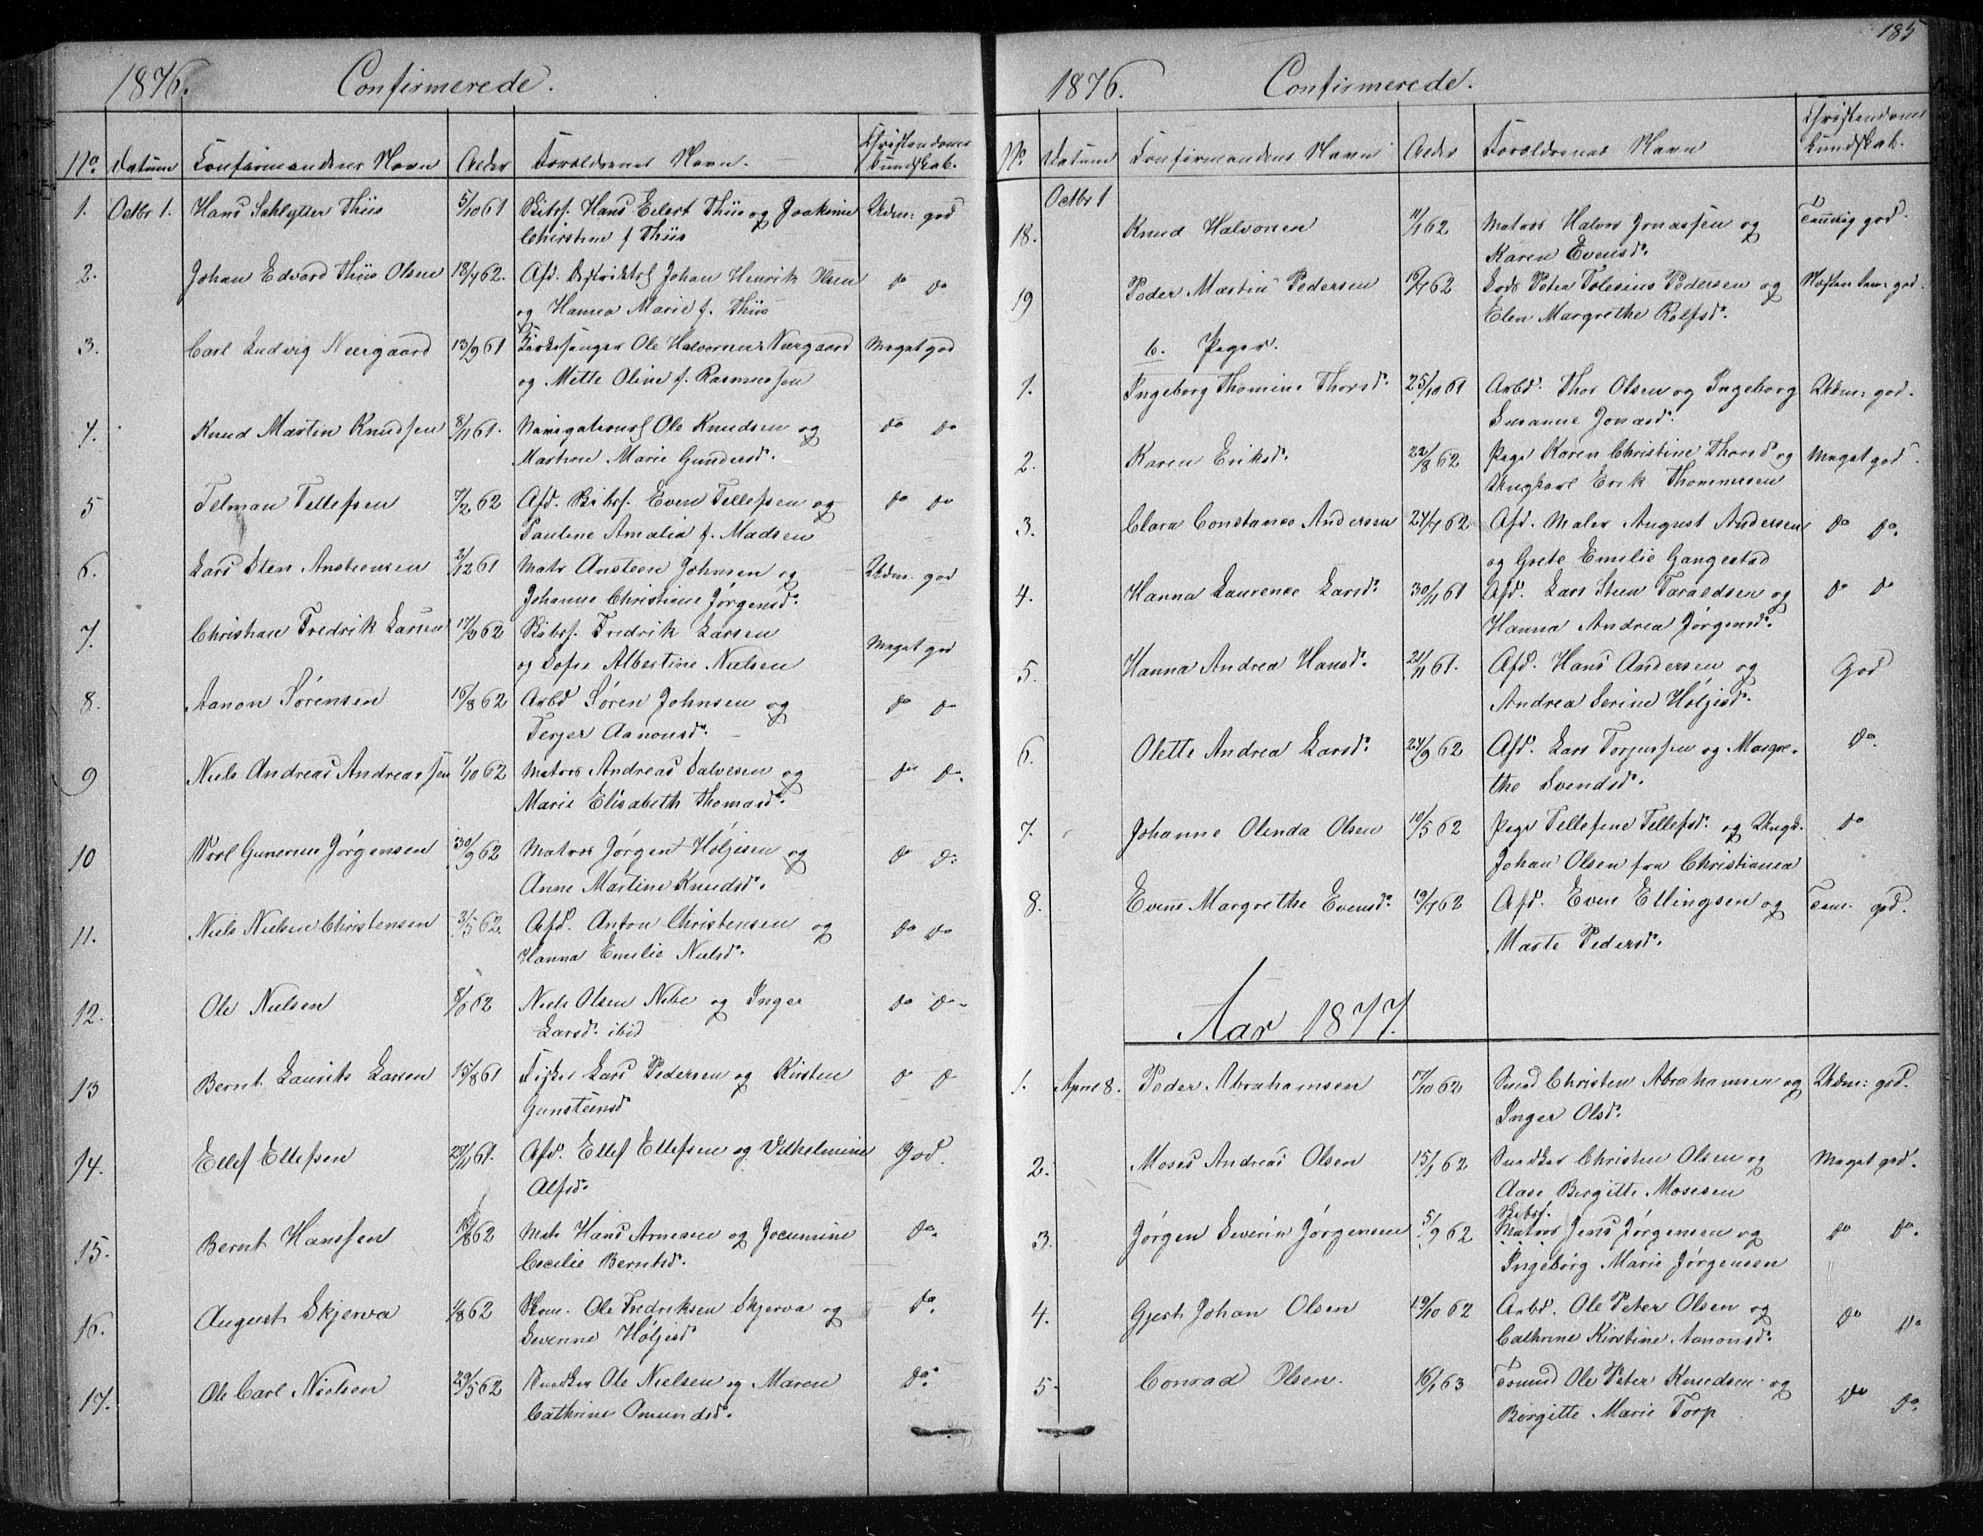 1876. Confirmerede.
No. Datum Confirmandens Navn Alder Forældrenes Navn. Christendoms kundskab.
1. Octbr 1. Hans Schlytter Thiis 5/10 61 Skibsf. Hans Eilert Thiis og Joakime Udm: god
Christine f. Thiis
2. Johan Edvard Thiis Olsen 18/7 62. Afd. Johan Henrik Olsen do do
og Hanna Marie f. Thiis
3. Carl Ludvig Neergaard 13/9 61 Kirkesanger Ole Halvorsen Neergaard Meget god
og Mette Oline f. Rasmussen
4. Knud Martin Knudsen 8/11 61. Navigations Ole Knudsen og do do
Marthine Marie Gundersd.
5 Telman Tellefsen 7/2 62 Afd. Skibsf. Even Tellefsen og do do
Pauline Amalia f. Madsen
6. Lars Sten Anstensen 2/12 61 Matr Ansteen Johnsen og Udm: god
Johanne Christiane Jørgensd.
7. Christian Fredrik Larsen 17/3 62 Skibsf. Fredrik Larsen Meget god
og Sofie Albertine Nielsen
8. Aanon Sørensen 16/8 62 Arbd Søren Johnsen og do do
Terjer Aanonsd.
9 Niels Andreas Andreassen 1/10 62 Matros Andreas Salvesen og do do.
Marie Elisabeth Thomasd.
10 Gunerius Jørgensen 30/9 62 Matros Jørgen Høljesen og do do
Anne Martine Knudsd.
11. Niels Nielsen Christensen 3/5 62. Afd. Anton Christensen og do do
Hanna Emilie Nielsd.
12. Ole Nielsen Niels Olsen Nibe og Inger do do
Larsd. ibid
13 Bernt Laurits Larsen 15/8 61 Fisker Lars Pedersen og Kirsten do do
Gunsteinsd
14. Ellef Ellefsen 23/11 61. Afd. Ellef Ellefsen og Vilhelmine God.
Alfsd.
15. Bernt Hanssen 18/8 62 Matr Hans Arnesen og Jocumine do.
Cecilie Berntsd.
16. August Skjerva 1/8 62 Skom. Ole Fredriksen Skjerva og do.
Severine Høljesd.
17. Ole Carl Nielsen 29/5 62 Snedker Ole Nielsen og Maren do.
Cathrine Omundsd.
185
1876. Confirmerede.
No. Datum Confirmandens Navn Alder Forældrenes Navn Christendoms kundskab.
Octbr 1
18. Knud Halvorsen 11/1 62 Matros Halvor Jonassen og Temmelig god.
Karen Evensd.
19 Peder Martin Pedersen Lods Peter Tolesius Pedersen og Næsten tem: god.
Elen Margrethe Rolfsd.
b. Piger.
1. Ingeborg Thomine Thorsd. 25/10 61 Arbd. Thor Olsen og Ingeborg Udm: god.
Susanne Jonasd.
2. Karen Eriksd. 22/8 62 Pige Karen Christine Thorsd og Meget god.
Ungkarl Erik Thommesen
3. Clara Constance Andersen 24/7 62 Afd. Maler August Andersen do do.
og Grete Emilie Gangestad
4. Hanna Laurence Larsd. 30/11 61 Afd. Lars Steen Taraldsen og do do
Hanna Andrea Jørgensd.
5. Hanna Andrea Hansd. 21/11 61. Afd. Hans Andersen og God
Andrea Serine Høljesd.
6. Olette Andrea Larsd. 24/9 62 Afd. Lars Torjussen og Margre- do.
the Svendsd.
7. Johanne Olenda Olsen 10/5 62 Pige Tellefine Tellefsd. og Ungk. do
Johan Olsen fra Christiania
8. Evene Margrethe Evensd. 19/7 62 Afd. Even Ellingsen og Tem. god.
Marte Pedersd.
Aar 1877.
1. April 8. Peder Abrahamsen 17/10 62 Smed Christen Abrahamsen og Udm: god.
Inger Olsd.
2. Moses Andreas Olsen 15/1 62 Snedker Christen Olsen og Meget god.
Aase Birgitte Mosesen
Skibsf.
3. Jørgen Severin Jørgensen 5/9 62 Matros Jens Jørgensen og do do.
Ingeborg Marie Jørgensen
4. Gjert Johan Olsen 19/10 62 Arbd. Ole Peter Olsen og do do
Cathrine Kirstine Aanonsd.
5. Conrad Olsen. 16/1 63 Tømmd Ole Peter Knudsen og do do.
Birgitte Marie Torp